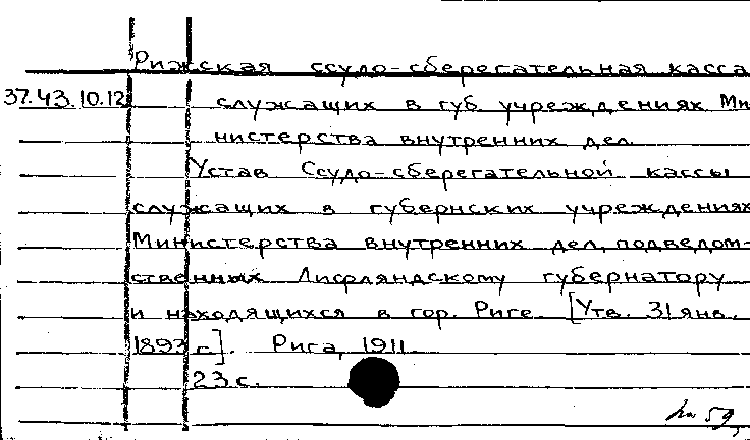 Рижская ссудо-сберегательная касса
37.43.10.12 служащих в губ. учреждениях Ми-
нистерства внутренних дел.
Устав Ссудо-сберегательной кассы
служащих в губернских учреждениях
Министерства внутренних дел, подведом-
ственных Лифляндскому губернатору
и находящихся в гор. Риге. [Утв. 31 янв.
1893 г.]. Рига, 1911.
23 с.
59